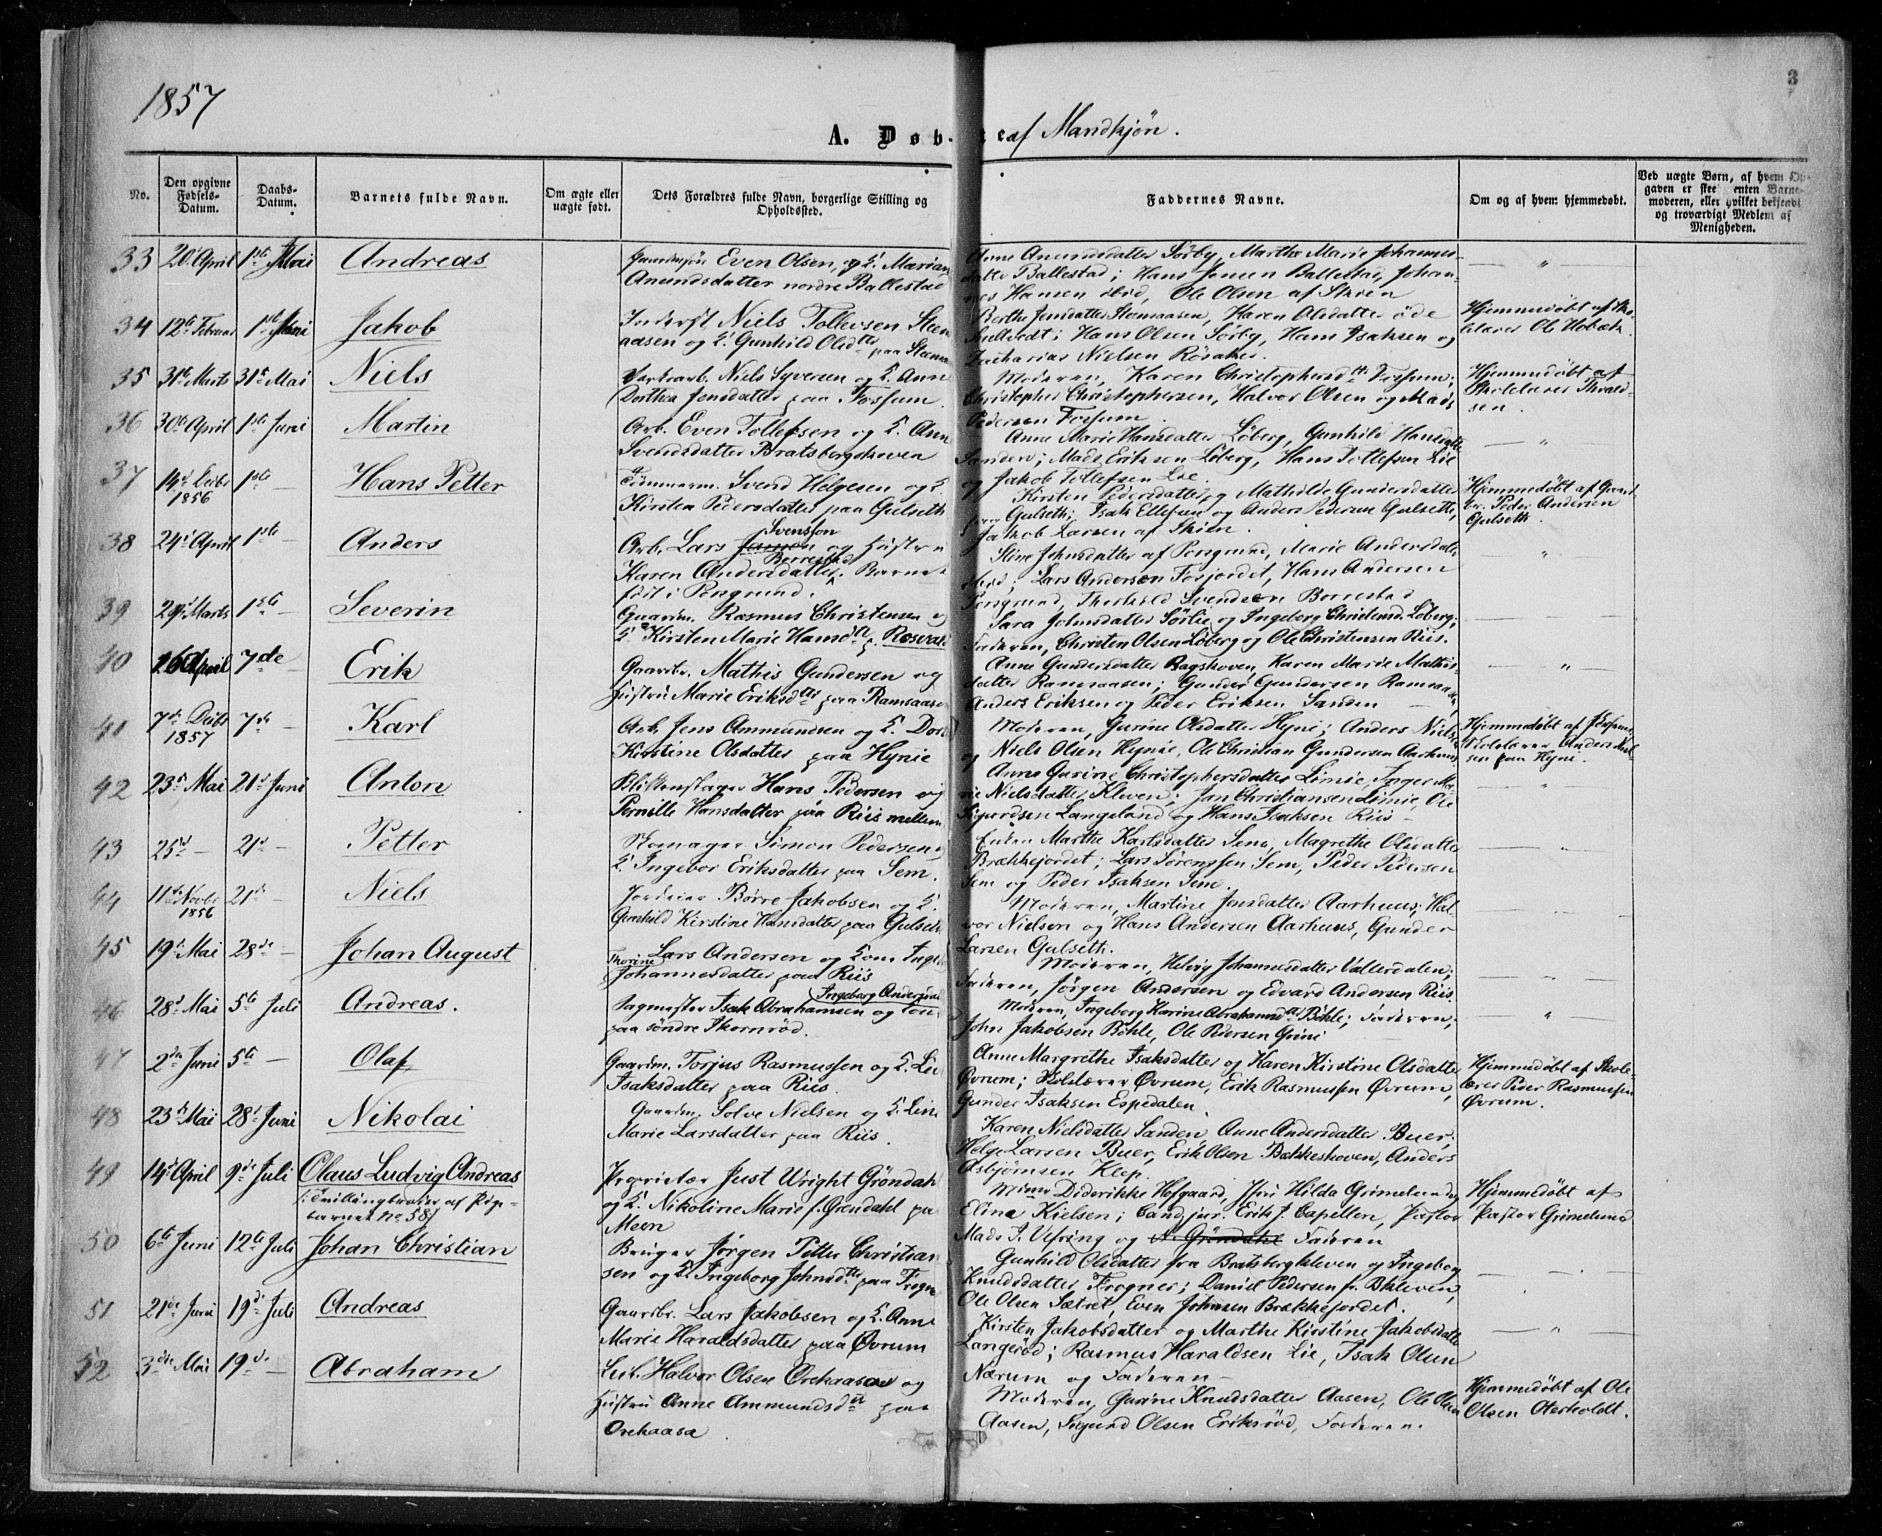 1857
3
A. Døb e af Mandkjøn.
No.
Den opgivne Fødsels-Datum.
Daabs-Datum.
Barnets fulde Navn.
Om ægte eller uægte født.
Dets Forældres fulde Navn, borgerlige Stilling og Opholdssted.
Faddernes Navne.
Om og af hvem hjemmedøbt.
Ved uægte Børn, af hvem Opgaven er skee enten Barnemoderen, eller hvilket bekjendt og troværdigt Medlem af Menigheden.
33 20 April 1ste Mai Andreas
Even Olsen, og H. Marian
Amundsdatter nordre Ballestad
Anne Amundsdatter Sørby, Marthe Marie Johannes-
datter Ballestad; Hans Jensen Ballestad, Johan-
nes Hansen ibid, Ole Olsen af Skien
34 12te Februar 1ste Juni Jakob
Inderst Niels Tollefsen Steen
aasen og H. Gunhild Olsdtr paa Steena
Berthe Jensdatter Steenaasen, Karen Olsdatter
Hans Olsen Sørby, Hans Isaksen og
Zacharias Nielsen Røsaker.
Hjemmedøbt af Sko-
lelærer Ole Hobæk
35 31te Marts 31te Mai Niels
Niels Syversen og H. Ann
Dorthea Jensdatter paa Fossum
Moderen, Karen Christophersdtr Fossum;
Christopher Christophersen, Halvor Olsen og Mads
Pedersen Fossum
Hjemmedøbt af
Skolelærer Thrond-
sen.
36 30te April 1ste Juni Martin
Arb. Even Tollefsen og H. Ann
Svendsdatter Bratsbergkleven
Anne Marie Hansdatter Løberg, Gunhild Hansdtr
Sanden; Mads Eriksen Løberg, Hans Tollefsen Lie
og Jakob Tollefsen Lie.
37 14de Decbr 1856 1ste — Hans Petter
Tømmerm. Svend Helgesen og H.
Kirsten Pedersdatter paa Gulseth
Kirsten Pedersdatter og Mathilde Gundersdatter
Gulseth; Isak Ellefsen og Anders Pedersen Gulseth,
Jakob Larsen af Skien.
Hjemmedøbt af Gaard-
br. Peder Andersen
Gulseth.
38 24de April 1ste — Anders
Svensson
Arb. Lars Jansøn og Hustru
Borrestad
Karen Andersdatter. Barnet
født i Porsgrund.
Stine Johnsdatter af Porsgrund, Marie Andersdatter
ibid; Lars Andersen Fosjordet, Hans Andersen
Porsgrund, Thorkild Svendsen Borrestad
39 29de Marts 1ste — Severin
Gaardm. Rasmus Christensen og
H. Kirsten Marie Hansdtr p. Rosvald
Sara Johnsdatter Sørlie og Ingeborg Christensd. Løberg;
Faderen, Christen Olsen Løberg og Ole Christensen Riis.
40 26 April 7de Erik
Gaardbr. Mathis Gundersen og
Hustru Marie Eriksdtr paa Ramsaasen
Anne Gundersdatter Bagshoven, Karen Marie Mathis-
datter Ramsaasen; Gunder Gundersen Ramsaasen,
Anders Eriksen og Peder Eriksen Sanden
41 7de Debr 1857 7de — Karl
Arb. Jens Ammundsen og H. Dort
Kirstine Olsdatter paa Hynie
Moderen, Gurine Olsdatter Hyni; Anders Niels
og Niels Olsen Hynie, Ole Christian Gundersen Aarhuus
Hjemmedøbt af
Skolelærer Anders Niel-
sen paa Hyni.
42 23de Mai 21de Juni Anton
Blikkenslager Hans Pedersen og
Pernille Hansdatter paa Riis mellem
Anne Gurine Christophersdatter Limie, Inger Ma-
rie Nielsdatter Kleven; Jan Christiansen Limie, Ole
Sigurdsen Langeland og Hans Isaksen Riis
43 25de — 21de — Petter
Skomager Simon Pedersen og
H. Ingebor Eriksdatter paa Sem.
Enken Marthe Karlsdatter Sem, Magrethe Olsdatter
Brækkejordet; Lars Sørenssen Sem, Peder Pedersen
Sem og Peder Isaksen Sem.
44 11de Novbr 1856 21de Niels
Jordeier Børre Jakobsen og H.
Gunhild Kirstine Hansdatter paa Gulseth
Moderen, Martine Jensdatter Aarhuus; Hal-
vor Nielsen og Hans Andersen Aarhuus, Gunder
Larsen Gulseth.
45 19de Mai 28de — Johan August
Lars Andersen og Kone Inge
Thorine
Johannesdatter paa Riis
Moderen, Helvig Johannesdatter Valterdalen;
Faderen, Jørgen Andersen og Edvard Andersen Riis.
46 28de Mai 5te Juli Andreas.
Ingeborg Andersdat
Sagmester Isak Abrahamsen og Kon
paa søndre Skornrød.
Moderen, Ingeborg Karine Abrahamsdtr Bøhle; Faderen,
John Jakobsen Bøhle, Ole Pedersen Grini
47 2den Juni 5te — Olaf
Gaardm. Torjus Rasmussen og H. Lie
Isaksdatter paa Riis.
Anne Margrethe Isaksdatter og Karen Kirstine Olsdatter
Øvrum; Skolelærer Øvrum, Erik Rasmussen Øvrum,
Gunder Isaksen Espedalen.
Hjemmedøbt af Skole-
lærer Peder Rasmussen
Øvrum.
48 23de Mai 28de Juni Nikolai
Gaardm. Solve Nielsen og H. Line
Marie Larsdatter paa Riis.
Karen Nielsdatter Sanden, Anne Andersdatter Buer;
Helge Larsen Buer, Erik Olsen Bakkeskoven, Anders
Asbjørnsen Klep.
49 14de April 9de Juli Olaus Ludvig Andreas
/: Tvillingbroder af Pige-
barnet No 58/
Proprietær Just Wright Gröndah
og H. Nikoline Marie f. Grøndahl pa
Meen
Mme Diderikke Hofgaard, Jfru Hilda Grimelund og
Elina Kielsen; Cand. jur. Erik J. Capellen, Pastor
Mads J. Vefring og N. Gröndahl Faderen
Hjemmedøbt af
Pastor Grimelund
50 6te Juni 12te Juli Johan Christian
Bruger Jørgen Petter Christian
sen og H. Ingeborg Johnsdtr paa Frogne
Gunhild Olsdatter fra Bratsbergkleven og Ingeborg
Knudsdatter Frogner; Daniel Pedersen fr. Bkleven,
Ole Olsen Sætret, Even Johnsen Brækkejordet.
51 21de Juni 19de Juli Andreas
Gaardbr. Lars Jakobsen og H. Anne
Marie Haraldsdatter paa Øvrum
Kirsten Jakobsdatter og Marthe Kirstine Jakobsdatter
Langerød; Rasmus Haraldsen Lie, Isak Olsen
Nærum og Faderen —
52 3die Mai 19de — Abraham
Leil. Halvor Olsen Orehaasa og
Hustru Anne Ammundsdtr paa
Orehaasa
Moderen, Gurine Knudsdatter Aasen, Ole Olsen
Aasen, Sigurd Olsen Eriksrød, Faderen.
Hjemmedøbt af Ole
Olsen Oterholdt.